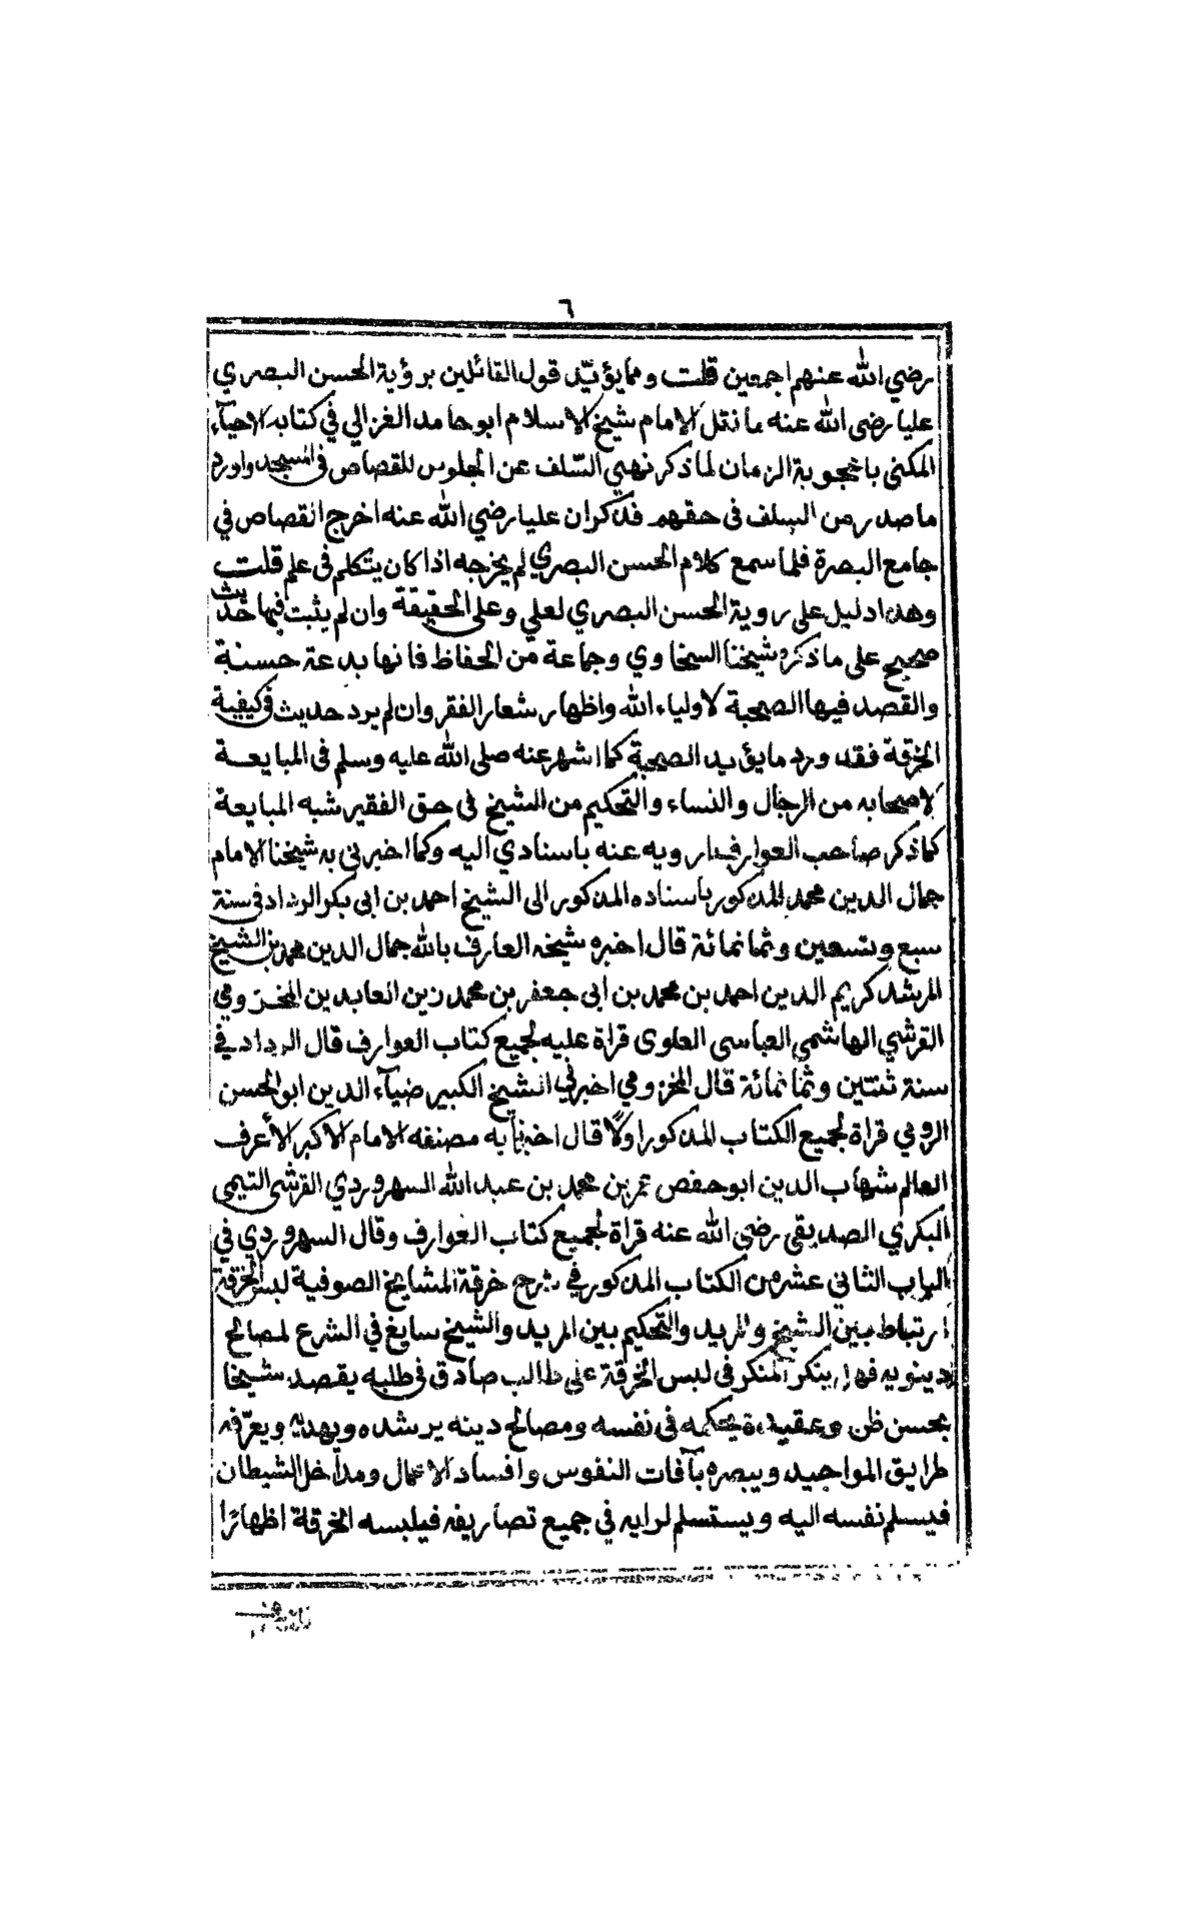 ٦
رضي الله عنهم اجمعين قلت ومما يؤيّد قول القائلين برؤية الحسن البصري
عليا رضى الله عنه ما نقل الامام شيخ الاسلام ابو حامد الغزالي في كتابه الاحيآء
المكنى باعجوبة الزمان لما ذكر نهي السّلف عن الجلوس للقصاص فى المسجد واورد
ما صدر من السلف فى حقهم فذكر ان عليا رضي الله عنه اخرج القصاص في
جامع البصرة فلما سمع كلام الحسن البصري لم يخرجه اذا كان يتكلم فى علم قلت
وهذا دليل على روية الحسن البصري لعلي وعلى الحقيقة وان لم يثبت فيها حديث
صحيح على ما ذكره شيخنا السخاوي وجماعة من الحفاظ فانها بدعة حسنة
والقصد فيها الصحبة لاولياء الله واظهار شعار الفقر وان لم يرد حديث في كيفية
الخرقة فقد ورد ما يؤيد الصحبة كما اشهر عنه صلى الله عليه وسلم فى المبايعة
لاصحابه من الرجال والنساء والتحكيم من الشيخ فى حق الفقير شبه المبايعة
كما ذكر صاحب العوارف ارويه عنه باسنادي اليه وكما اخبرنى به شيخنا الامام
جمال الدين محمد المذكور باسناده المذكور الى الشيخ احمد بن ابى بكر الرداد فى سنة
سبع وتسعين وثمانمائة قال اخبره شيخه العارف بالله جمال الدين محمد بن الشيخ
المرشد كريم الدين احمد بن محمد بن ابى جعفر بن محمد زين العابدين المخزومي
القرشي الهاشمي العباسى العلوى قراة عليه لجميع كتاب العوارف قال الرداد في
سنة ثنتين وثمانمائة قال المخزومي اخبرني الشيخ الكبير ضيآء الدين ابو الحسن
الرومي قراة لجميع الكتاب المذكور اولا قال اخبرنا به مصنفه الامام الاكبر الأعرف
العالم شهاب الدين ابو حفص عمر بن محمد بن عبد الله السهروردي القرشى التيمى
البكري الصديقى رضي الله عنه قراة لجميع كتاب العوارف وقال السهروردي في
الباب الثاني عشر من الكتاب المذكور في شرح خرقة المشايخ الصوفية لبس الخرقة
ارتباط بين الشيخ والمريد والتحكيم بين المريد والشيخ سايغ في الشرع لمصالح
دينويه ينكر المنكر فى لبس الخرقة على طالب صادق في طلبه يقصد شيخا
بحسن ظن وعقيدة يحكمه فى نفسه ومصالح دينه يرشده ويهديه ويعرّفه
طرايق المواجيد ويبصره بآفات النفوس وافساد الاعمال ومداخل الشيطان
فيسلم نفسه اليه ويستسلم لرايه في جميع تصاريفه فيلبسه الخرقة اظهارًا